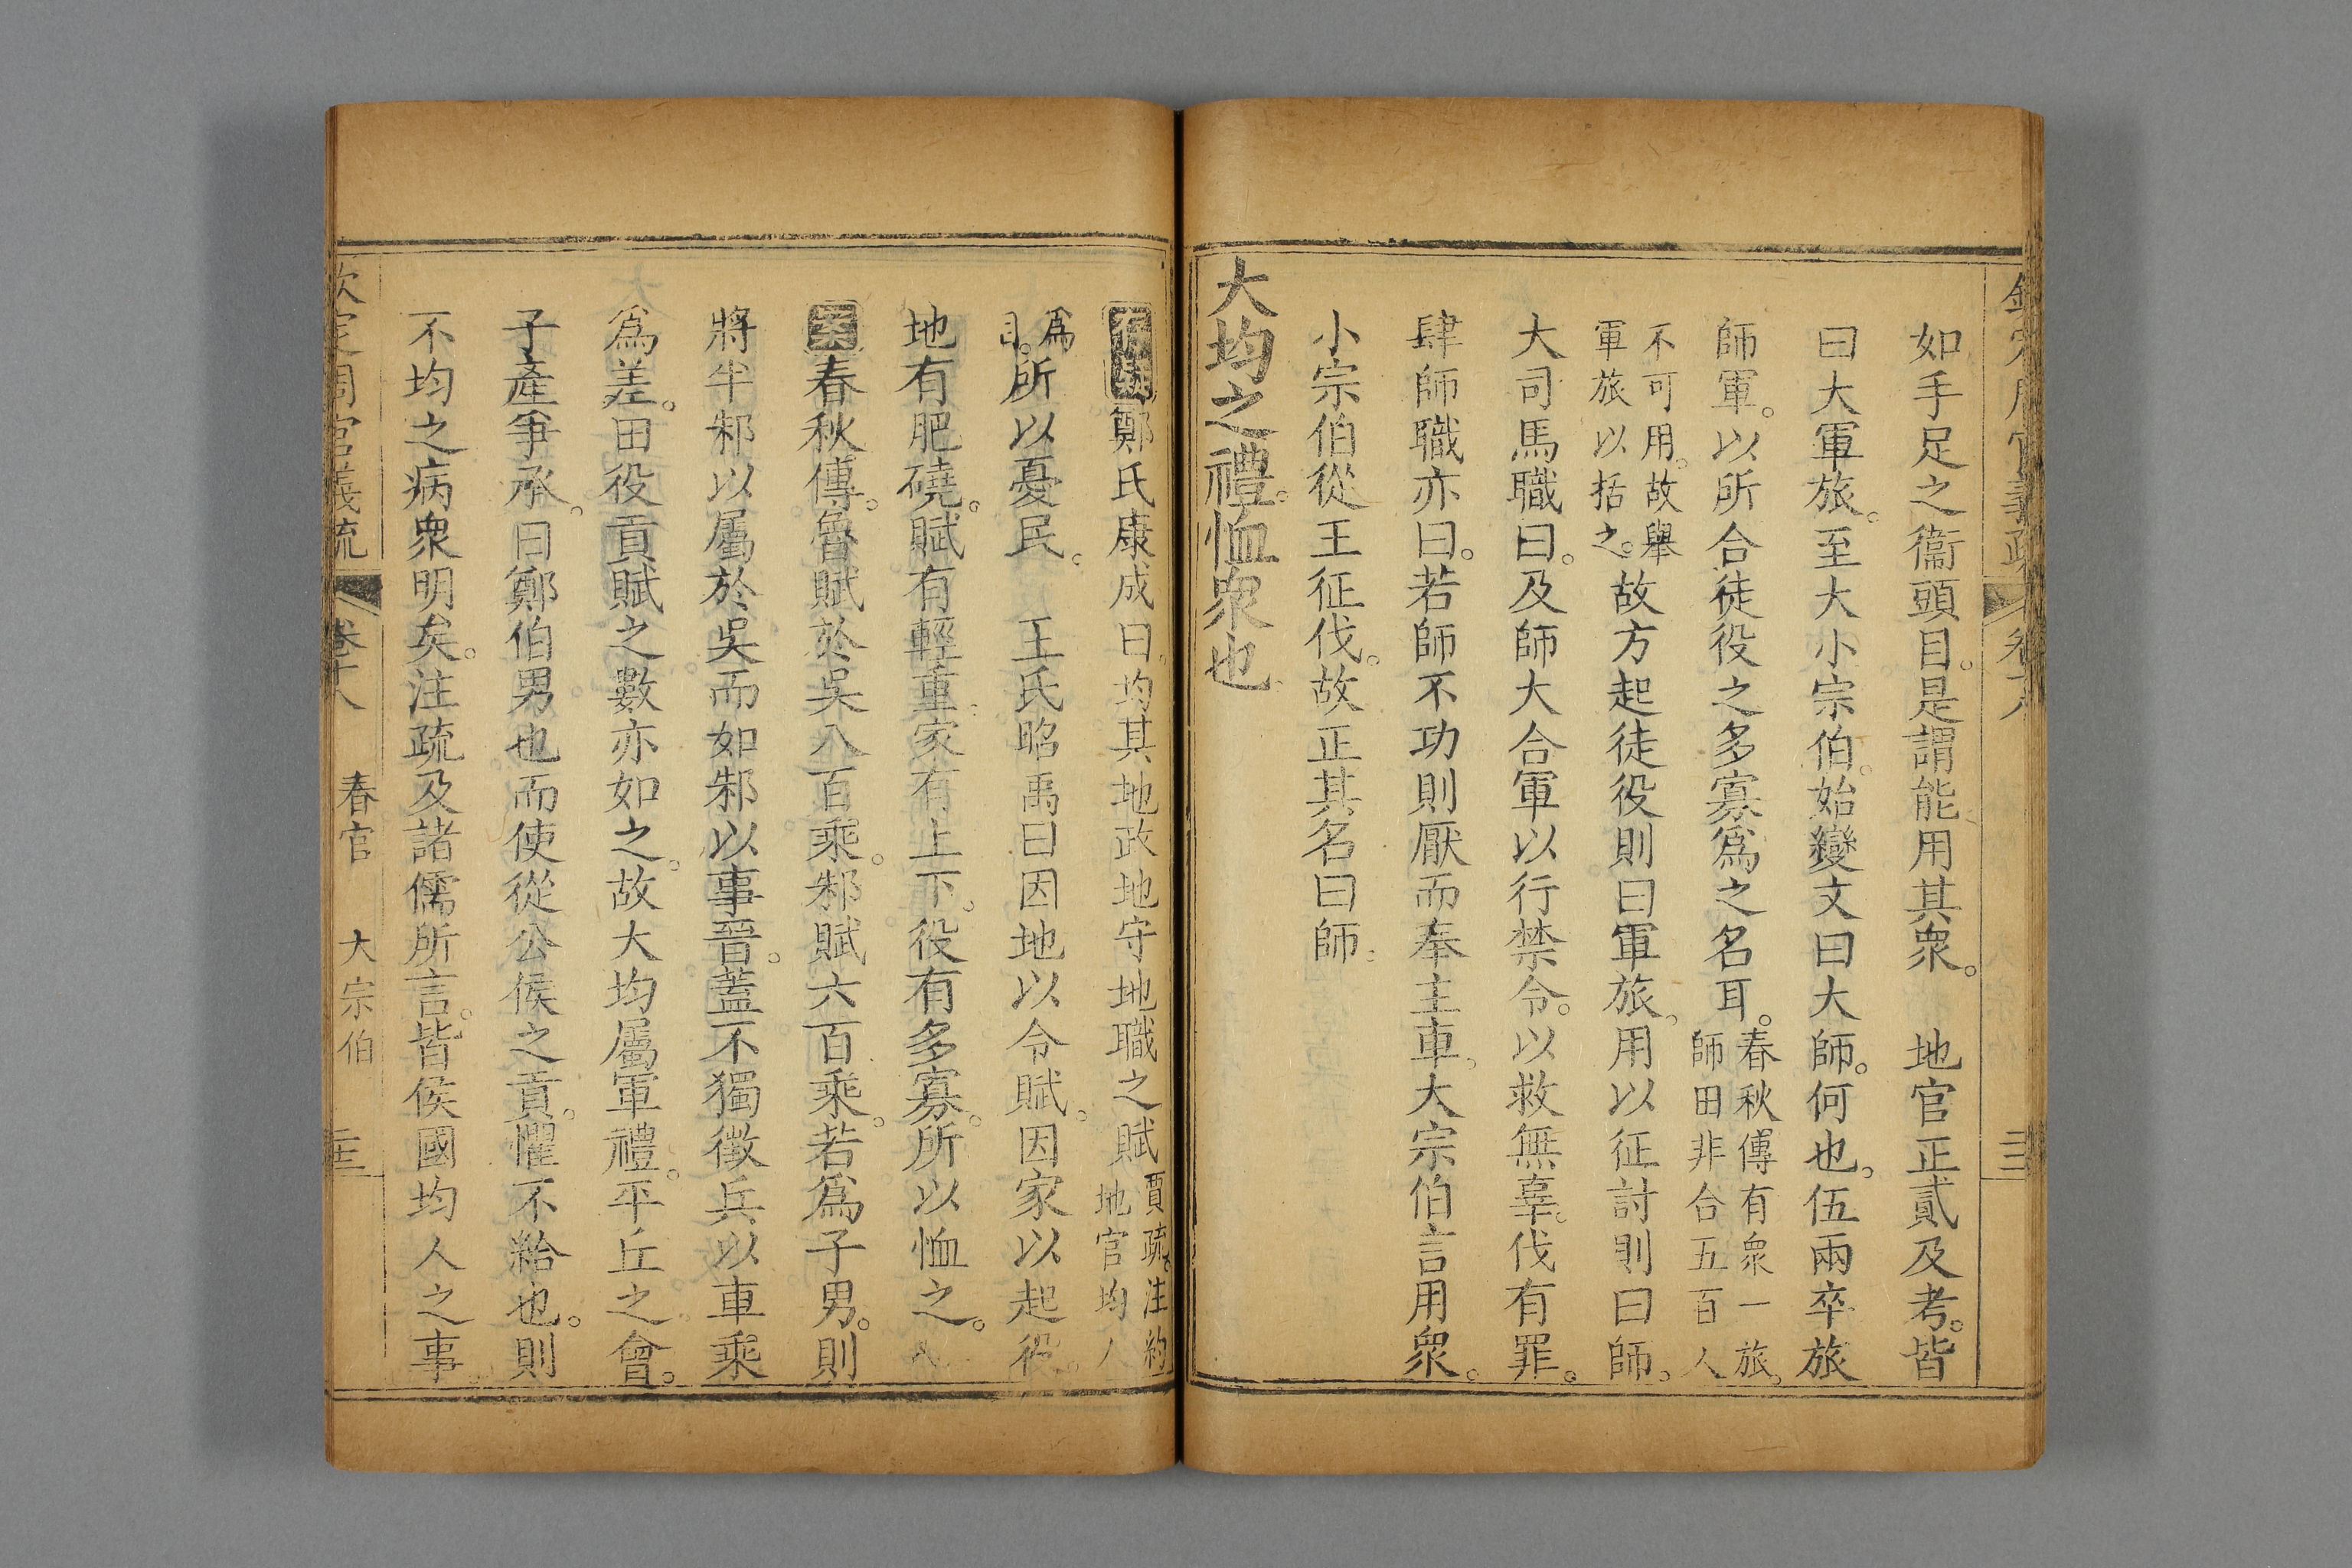 如手足之衞頭目。是謂能用其衆。　地官正貳及考。皆
曰大軍旅。至大小宗伯。始變文曰大師。何也。伍兩卒旅
師軍。以所合徒役之多寡爲之名耳。春秋傳有衆一旅。師田非合五百人
不可用。故舉軍旅以括之。故方起徒役則曰軍旅。用以征討則曰師。
大司馬職曰。及師大合軍以行禁令。以救無辜。伐有罪。
肆師職亦曰。若師不功則厭而奉主車。大宗伯言用衆。
小宗伯從王征伐。故正其名曰師。
大均之禮。恤衆也
鄭氏康成曰。均其地政地守地職之賦賈疏。注約地官均人
爲目。所以憂民。　王氏昭禹曰因地以令賦。因家以起役。
地有肥磽。賦有輕重。家有上下。役有多寡。所以恤之。
案春秋傳。魯賦於吳八百乘。邾賦六百乘。若爲子男。則
將半邾以屬於吳而如邾以事晉。蓋不獨徵兵以車乘
爲差。田役貢賦之數亦如之。故大均屬軍禮。平丘之會。
子產爭承。曰鄭伯男也而使從公侯之貢。懼不給也。則
不均之病衆明矣。注疏及諸儒所言。皆侯國均人之事
欽定周官義疏　卷十八　春官　大宗伯